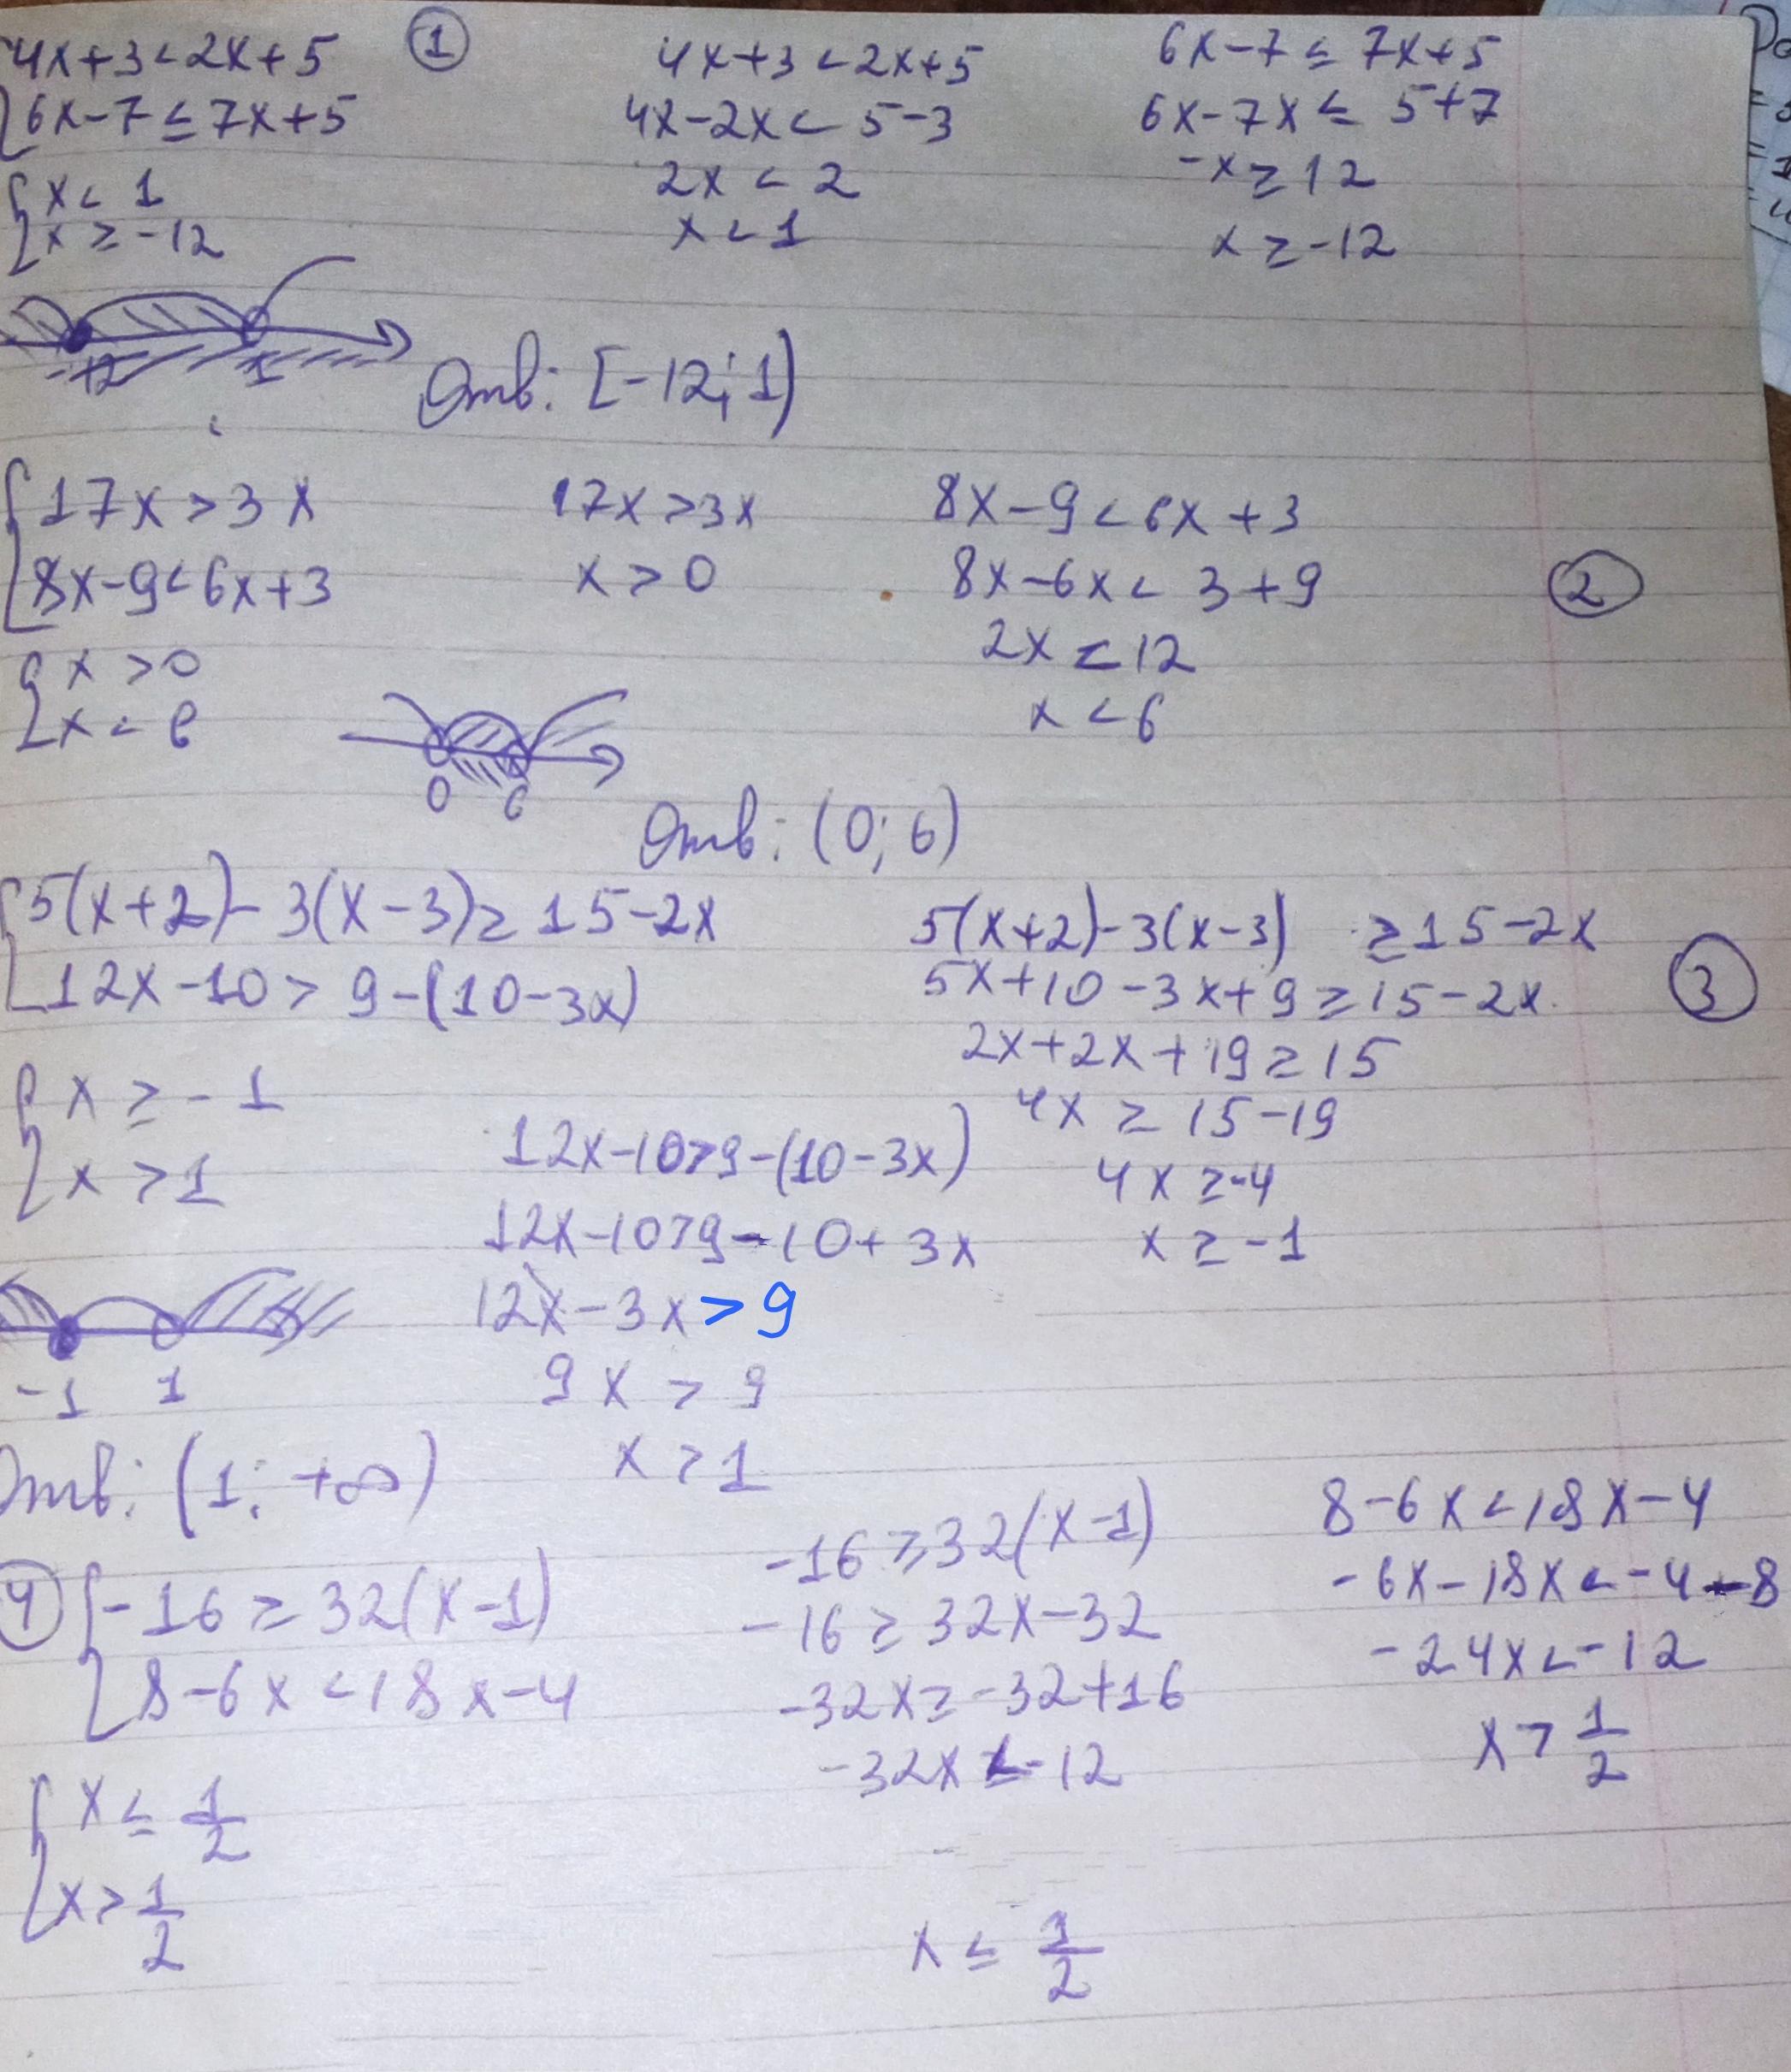 4x+3<2x+5
6x-7≤7x+5
①
x<1
x≥-12
4x+3<2x+5
4x-2x<5-3
2x<2
x<1
6x-7≤7x+5
6x-7x≤5+7
-x≥12
x≥-12
-12 1
Отв: [-12; 1)
17x>3x
8x-9<6x+3
x>0
x<6
17x>3x
x>0
8x-9<6x+3
8x-6x<3+9
2x<12
x<6
②
0 6
Отв: (0; 6)
5(x+2)-3(x-3)≥15-2x
12x-10>9-(10-3x)
x≥-1
x>1
5(x+2)-3(x-3) ≥15-2x
5x+10-3x+9≥15-2x.
2x+2x+19≥15
4x≥15-19
4x≥-4
x≥-1
③
12x-10>9-(10-3x)
12x-10>9-10+3x
12x-3x>9
9x>9
x>1
-1 1
Отв: (1; +∞)
④
-16≥32(x-1)
8-6x<18x-4
x≤1/2
x>1/2
-16≥32(x-1)
-16≥32x-32
-32x≥-32+16
-32x≤-12
x≤1/2
8-6x<18x-4
-6x-18x<-4-8
-24x<-12
x>1/2